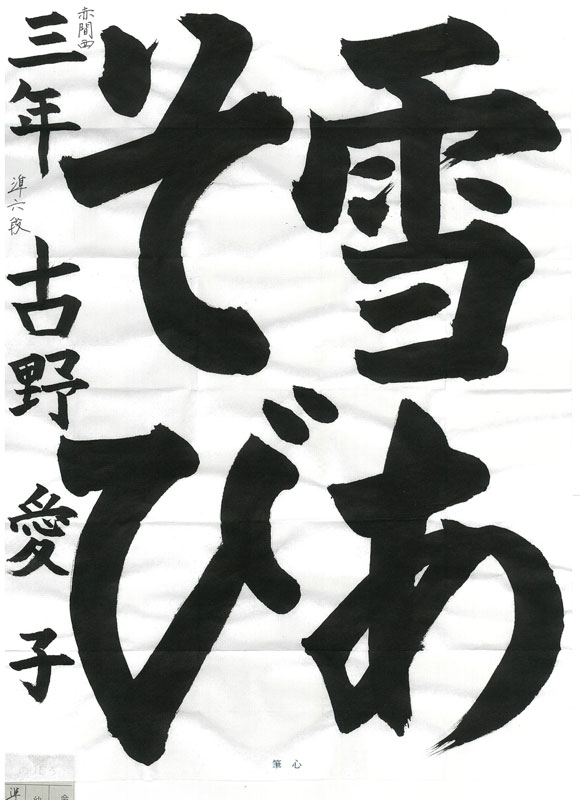 雪あ
そび
赤間西
三年 準六段 古野愛子
心筆
準